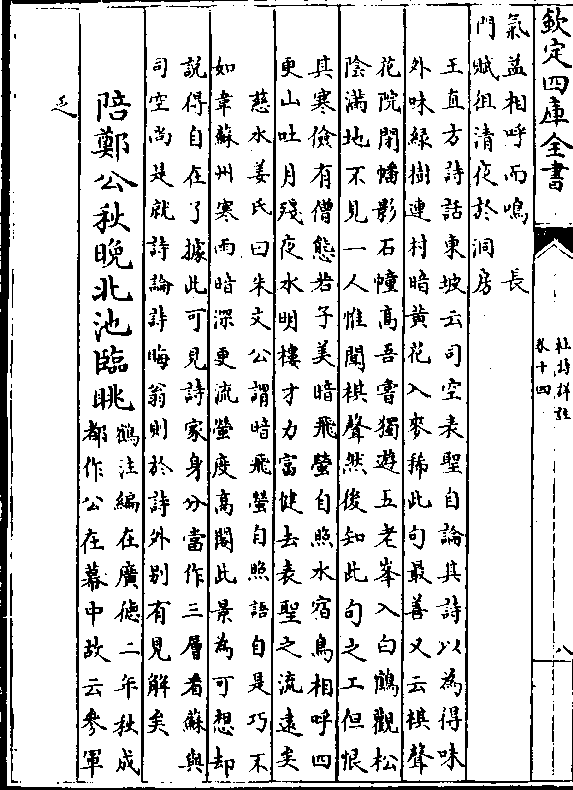 欽定四庫全書
杜詩詳註
卷十四
八
氣益相呼而鳴 長
門賦徂清夜於洞房
王直方詩話東坡云司空表聖自論其詩以為得味
外味綠樹連村暗黃花入麥稀此句最善又云棋聲
花院閉幡影石幢高吾嘗獨遊五老峯入白鶴觀松
陰滿地不見一人惟聞棋聲然後知此句之工但恨
其寒儉有僧態若子美暗飛螢自照水宿鳥相呼四
更山吐月殘夜水明樓才力富健去表聖之流遠矣
慈水姜氏曰朱文公謂暗飛螢自照語自是巧不
如韋蘇州寒雨暗深更流螢度高閣此景為可想却
說得自在了據此可見詩家身分當作三層看蘇與
司空尚是就詩論詩晦翁則於詩外別有見解矣
陪鄭公秋晚北池臨眺
鶴注編在廣德二年秋成
都作公在幕中故云參軍
乏